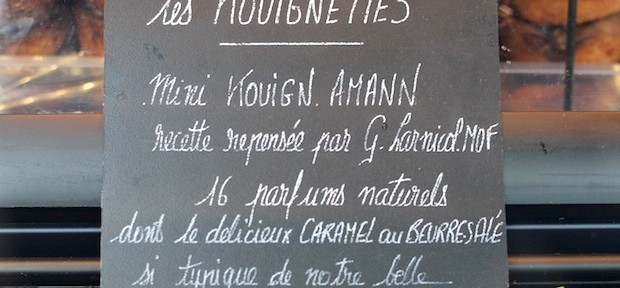 les KOUIGNETTES
Mini KOUIGN AMANN
recette repensée par G. Larnicol MOF
16 parfums naturels
dont le délicieux CARAMEL au BEURRE SALÉ
si typique de notre belle